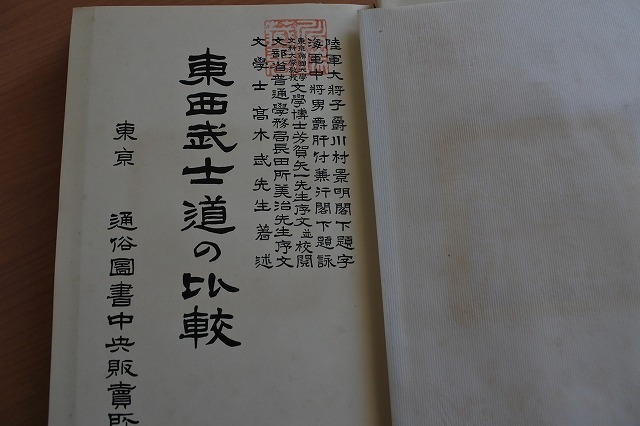 陸軍大將子爵川村景明閣下題字
海軍中將男爵肝付兼行閣下題詠
東京帝國大學文科大學教授文學博士芳賀矢一先生序文並校閲
文部省普通學務局長田所美治先生序文
文學士高木武先生著述
東西武士道の比較
東京 通俗圖書中央販賣所